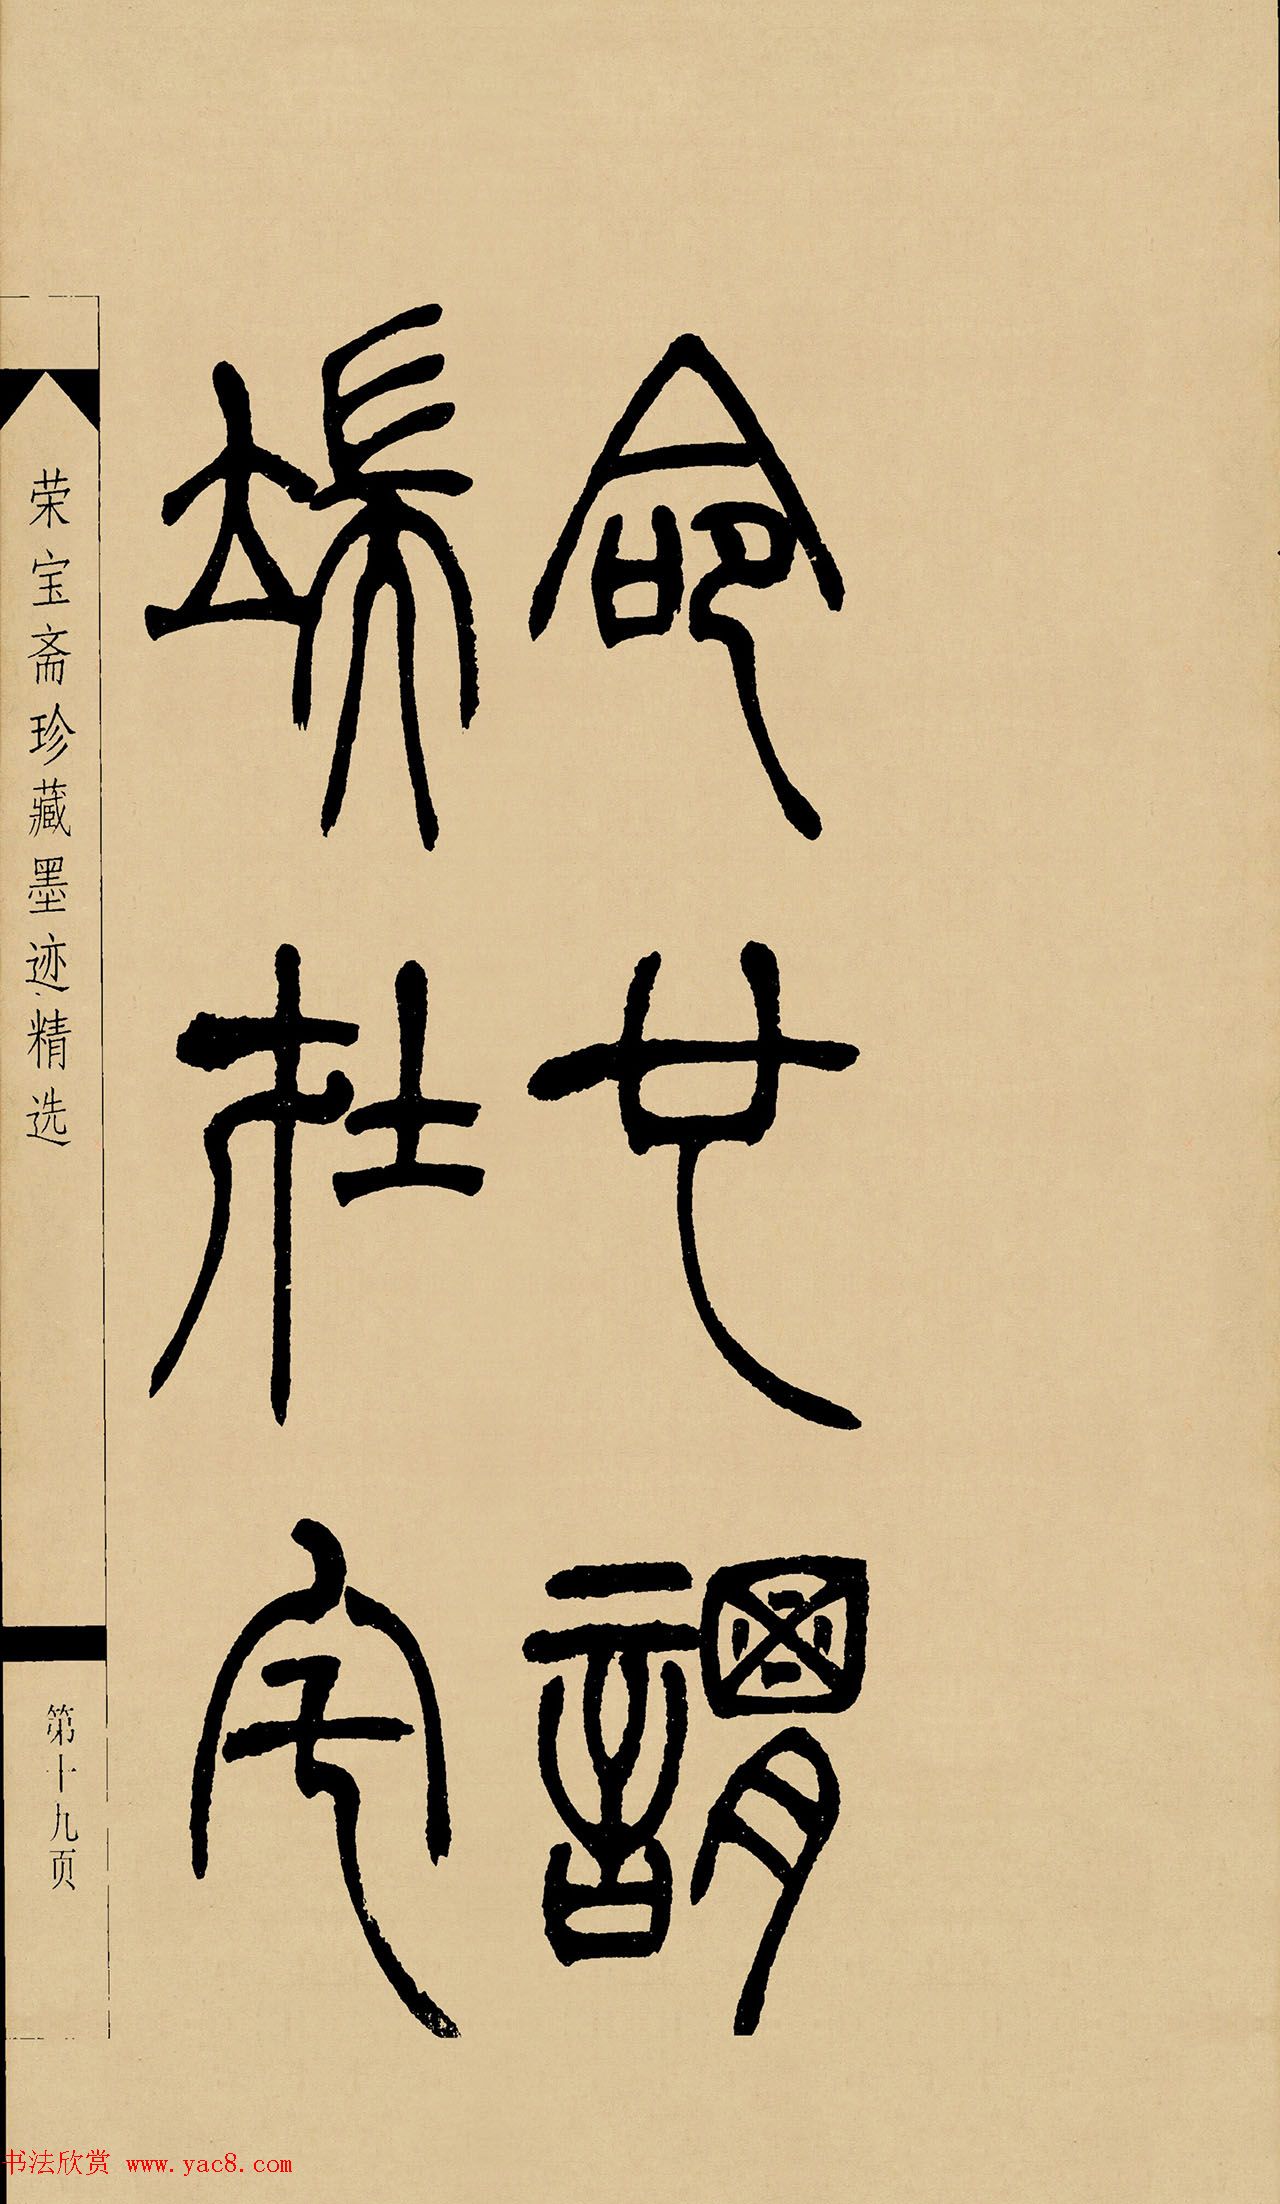 命也謂
端在宅
荣宝斋珍藏墨迹精选
第十九页
书法欣赏 www.yac8.com